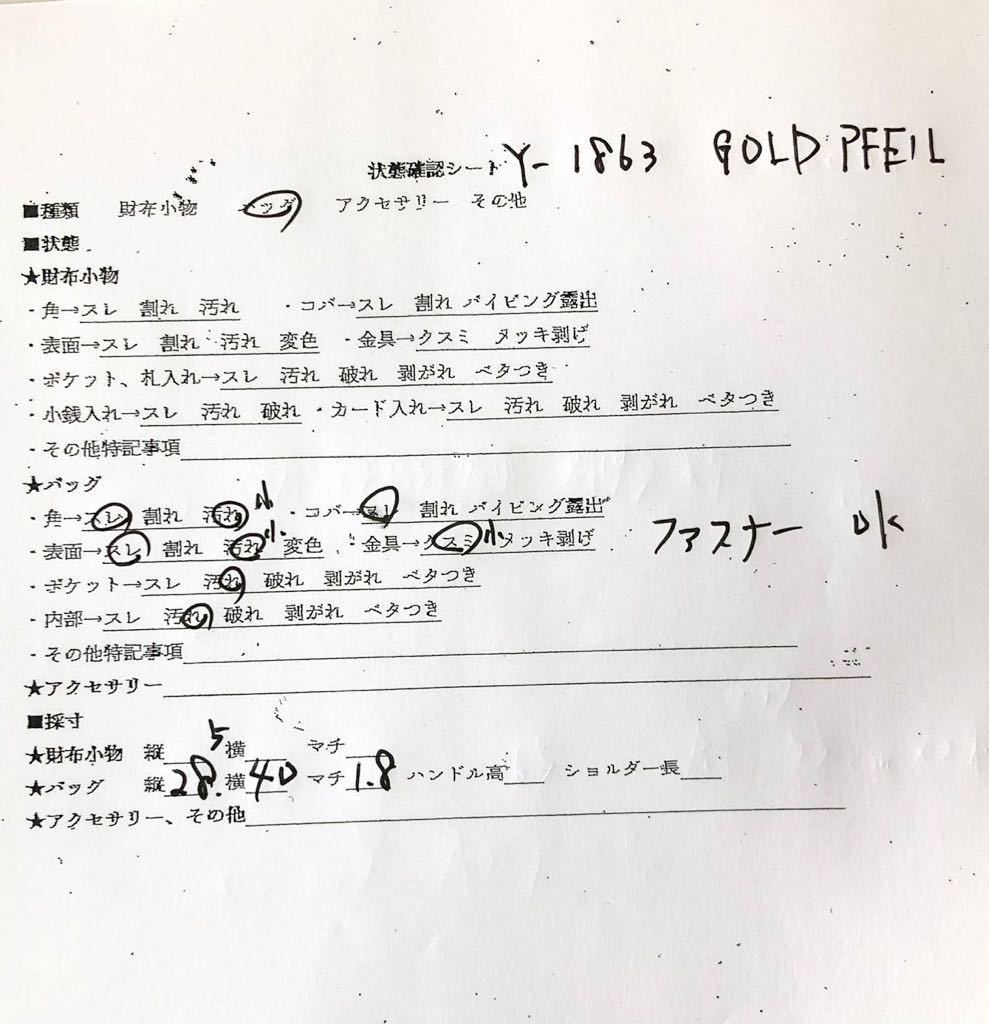 状態確認シート Y-1863 GOLD PFEIL
■種類 財布小物 バッグ アクセサリー その他
■状態
★財布小物
・角→スレ 割れ 汚れ ・コバ→スレ 割れ パイピング露出
・表面→スレ 割れ 汚れ 変色 ・金具→クスミ メッキ剥げ
・ポケット、札入れ→スレ 汚れ 破れ 剥がれ ベタつき
・小銭入れ→スレ 汚れ 破れ ・カード入れ→スレ 汚れ 破れ 剥がれ ベタつき
・その他特記事項
★バッグ
・角→スレ 割れ 汚れ 小 ・コバ→スレ 割れ パイピング露出
・表面→スレ 割れ 汚れ 小 変色 ・金具→クスミ 小 メッキ剥げ ファスナー ok
・ポケット→スレ 汚れ 破れ 剥がれ ベタつき
・内部→スレ 汚れ 破れ 剥がれ ベタつき
・その他特記事項
★アクセサリー
■採寸
★財布小物 縦 横 マチ
★バッグ 縦 28.5 横 40 マチ 1.8 ハンドル高 ショルダー長
★アクセサリー、その他